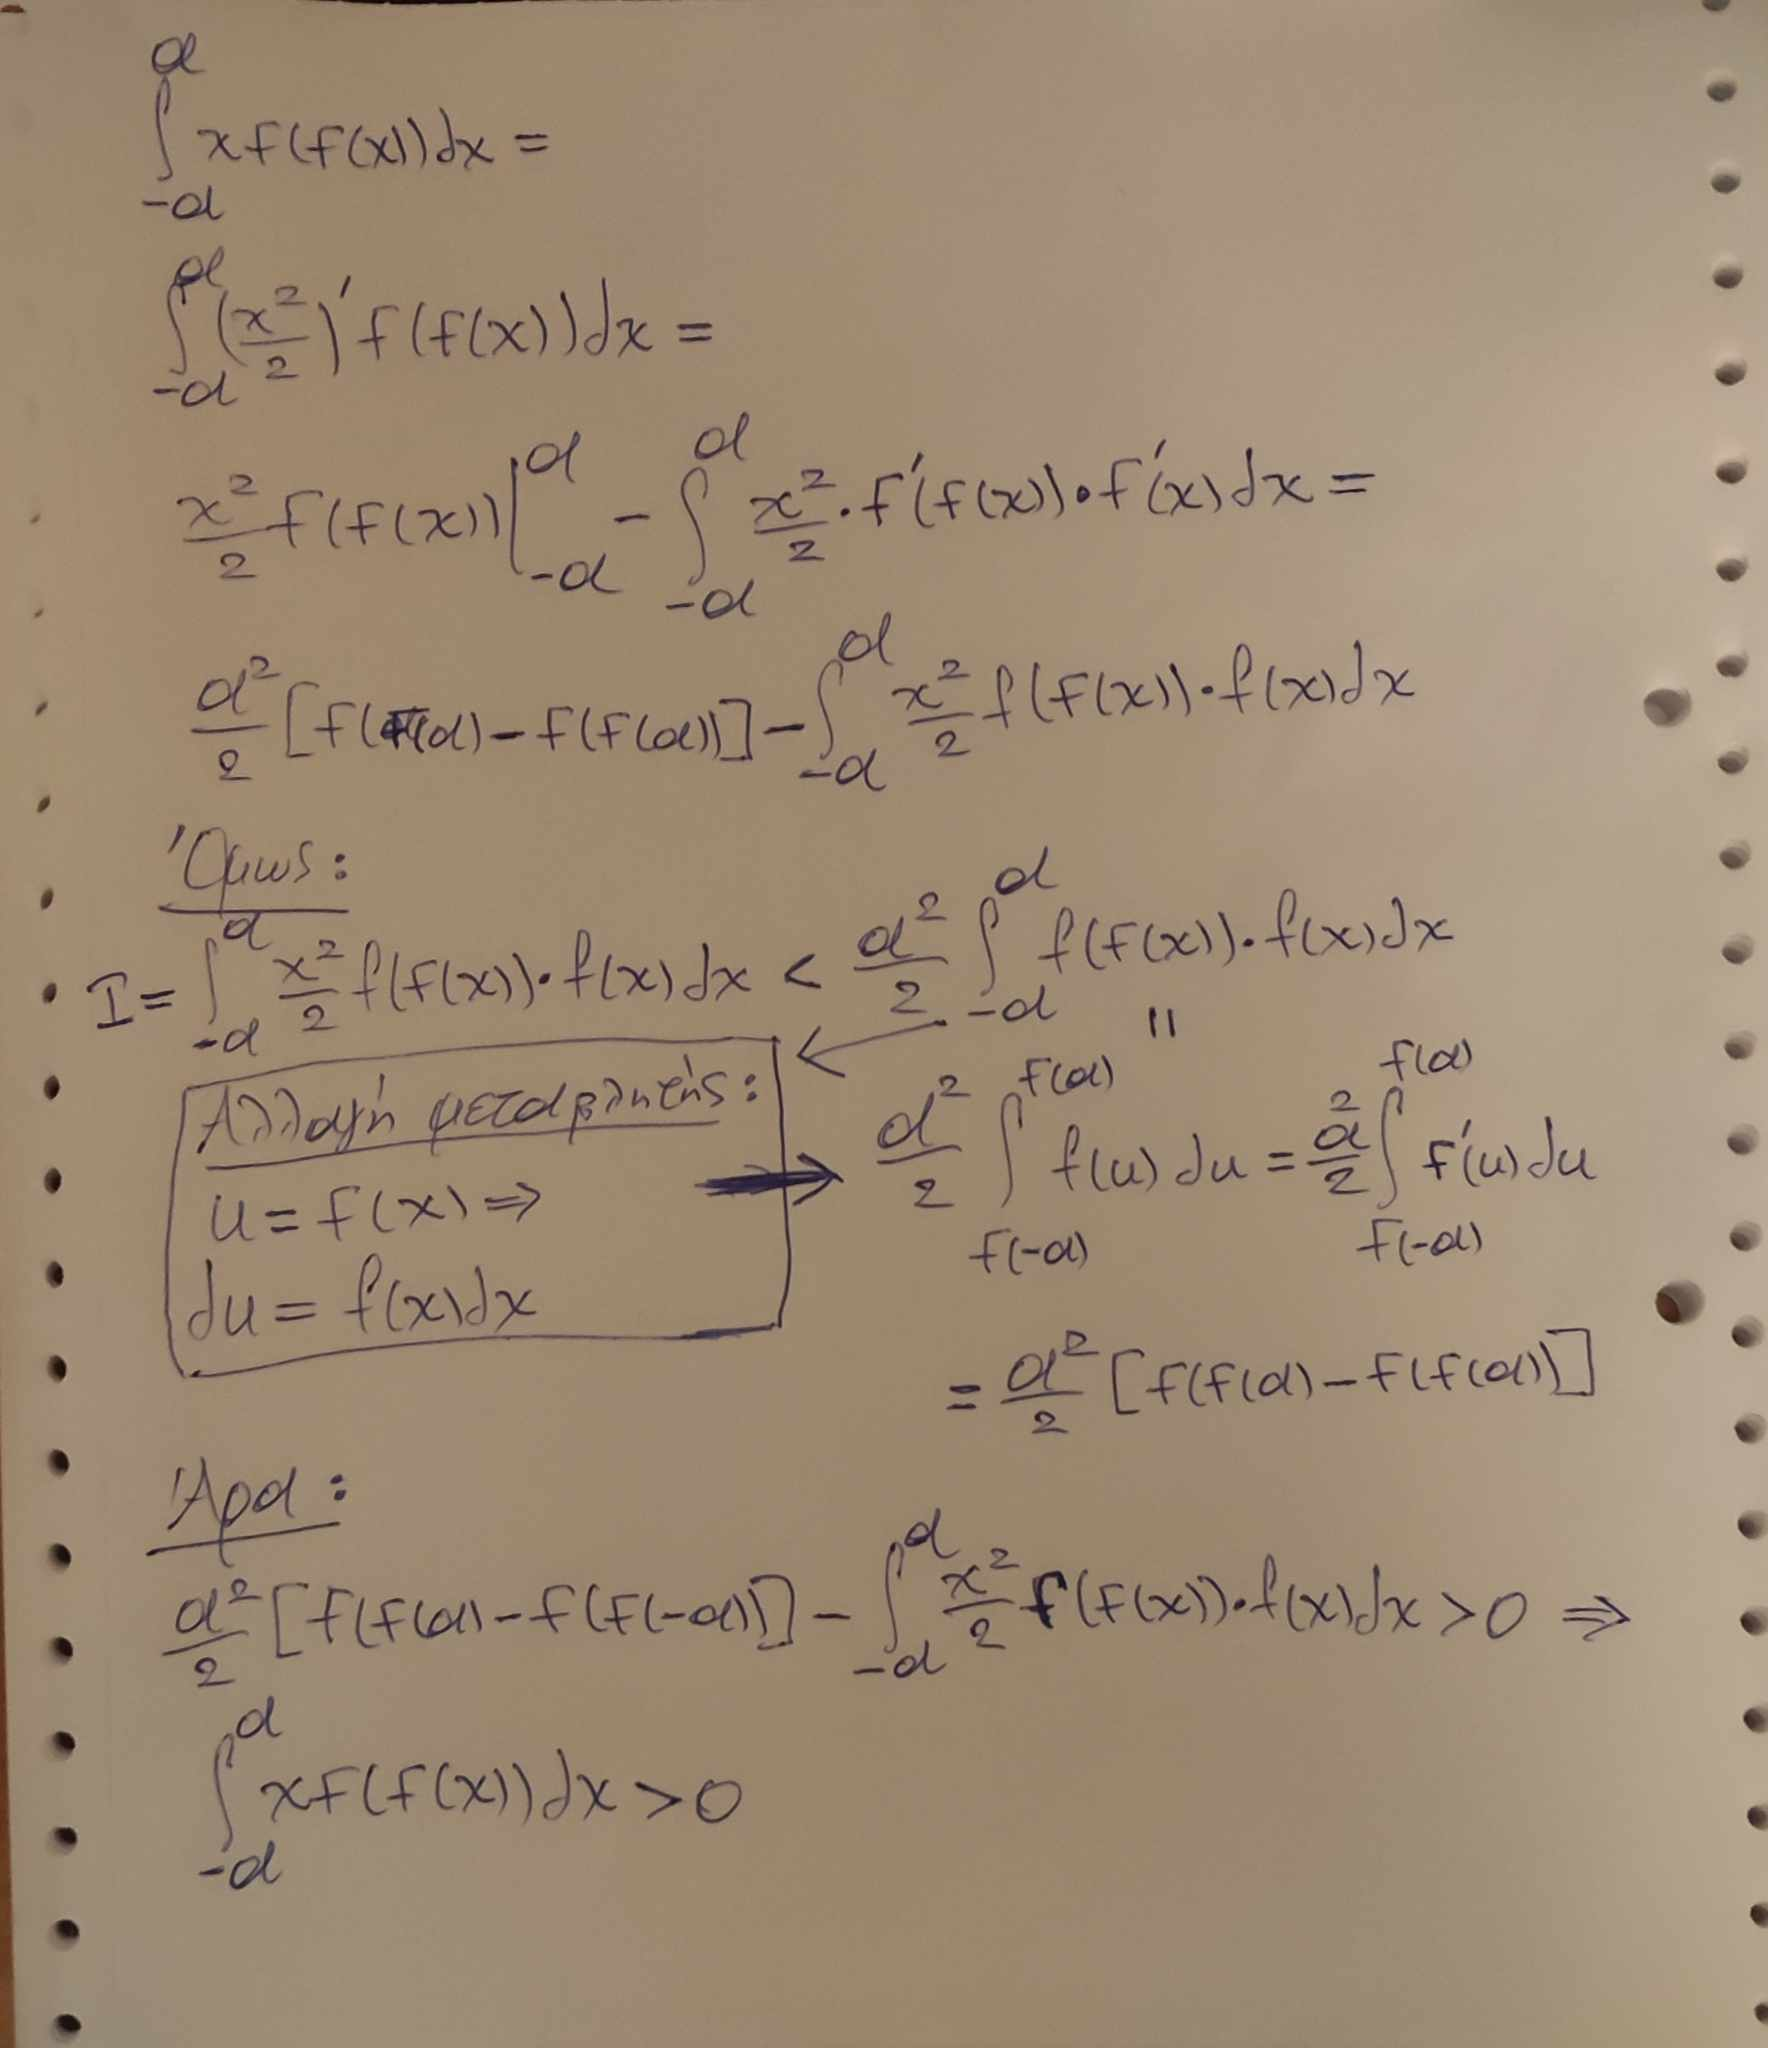 ∫_{-α}^{α} xF(F(x))dx =
∫_{-α}^{α} (x²/2)' F(F(x))dx =
x²/2 F(F(x)) |_{-α}^{α} - ∫_{-α}^{α} x²/2 · F'(F(x))·F'(x)dx =
α²/2 [F(F(α) - F(F(α))] - ∫_{-α}^{α} x²/2 f(F(x))·f(x)dx
Όμως:
I = ∫_{-α}^{α} x²/2 f(F(x))·f(x)dx < α²/2 ∫_{-α}^{α} f(F(x))·f(x)dx
=
Αλλαγή μεταβλητής:
u = F(x) ⇒
du = f(x)dx
α²/2 ∫_{F(-α)}^{F(α)} f(u)du = α²/2 ∫_{F(-α)}^{F(α)} F'(u)du
= α²/2 [F(F(α) - F(F(α))]
Άρα:
α²/2 [F(F(α) - F(F(-α))] - ∫_{-α}^{α} x²/2 f(F(x))·f(x)dx > 0 ⇒
∫_{-α}^{α} xF(F(x))dx > 0